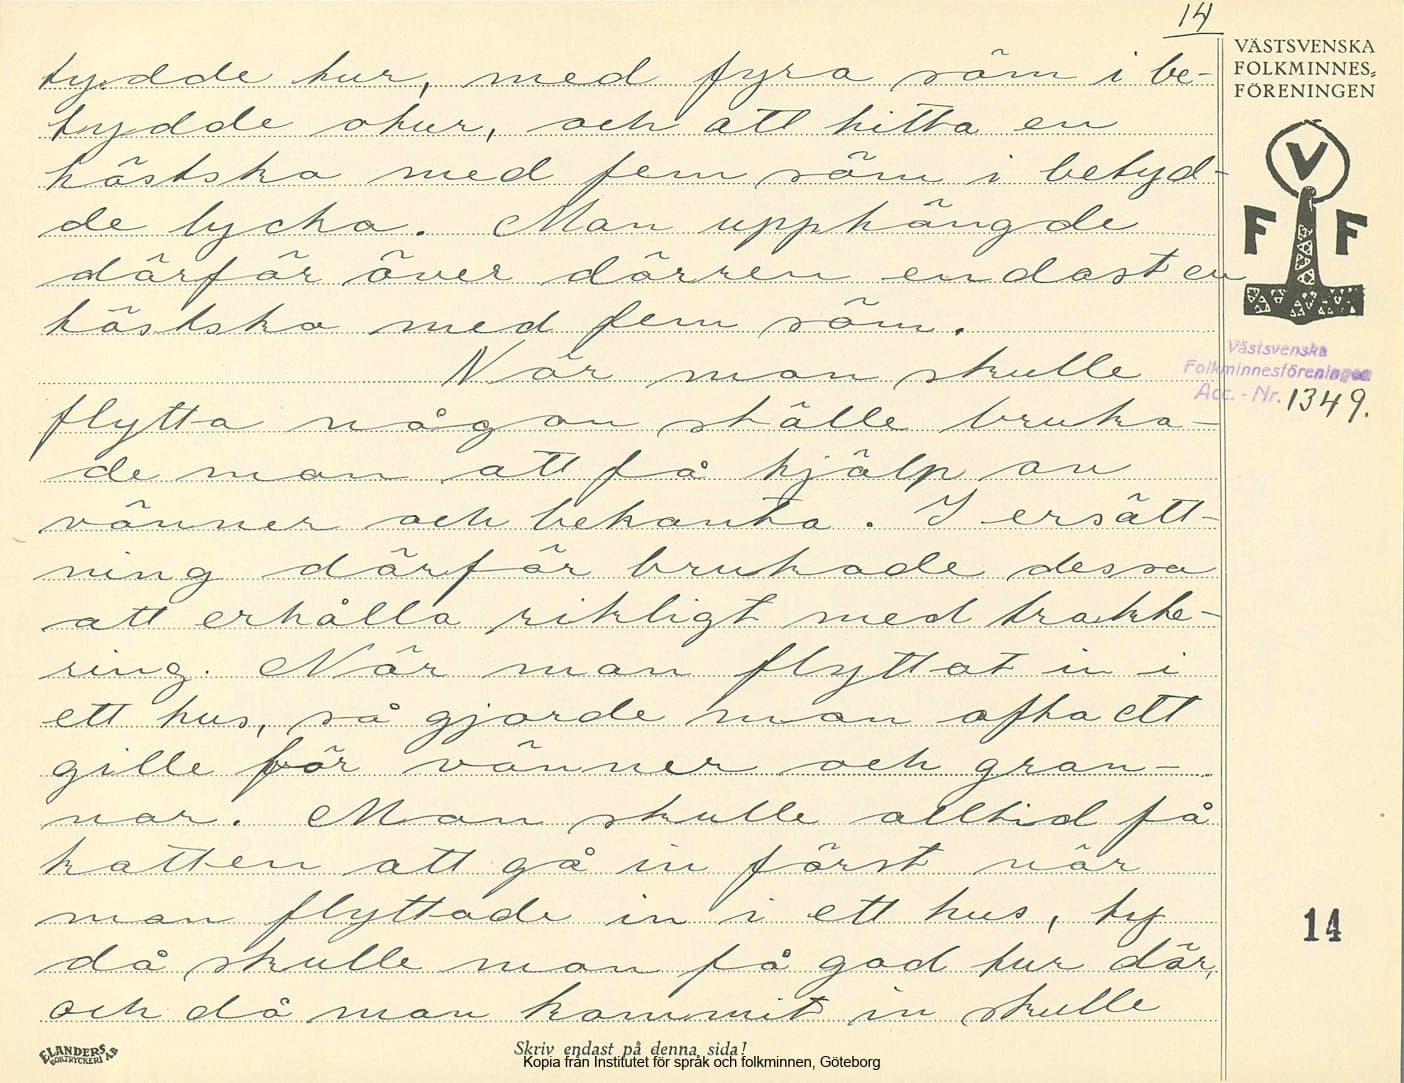 14
tydde tur, med fyra söm i be-
tydde otur, och att hitta en
hästsko med fem söm i betyd-
de lycka. Man upphängde
därför över dörren endast en
hästsko med fem söm.
När man skulle
flytta någon ställe bruka-
de man att få hjälp av
vänner och bekanta. I ersätt-
ning därför brukade dessa
att erhålla rikligt med trakte-
ring. När man flyttat in i
ett hus, så gjorde man ofta ett
gille för vänner och gran-
nar. Man skulle alltid få
katten att gå in först när
man flyttade in i ett hus, ty
då skulle man få god tur där,
och då man kommit in skulle
VÄSTSVENSKA
FOLKMINNES-
FÖRENINGEN
V
F F
Västsvenska
Folkminnesföreningen
Acc. - Nr. 1349.
14
ELANDERS
BOKTRYCKERI AB
Skriv endast på denna sida!
Kopia från Institutet för språk och folkminnen, Göteborg